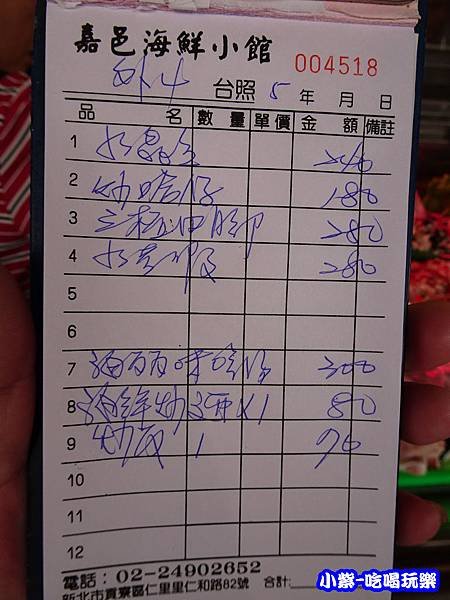 嘉邑海鮮小館
004518
外4 台照 5 年 月 日
品 名 數 量 單價 金 額 備註
1 水晶魚 240
2 炒蛤仔 180
3 三杯田雞 280
4 280
5
6
7 300
8 海鮮炒麵 X1 80
9 炒飯 1 70
10
11
12
電話：02-24902652
新北市貢寮區仁里里仁和路82號 合計:
小紫-吃喝玩樂